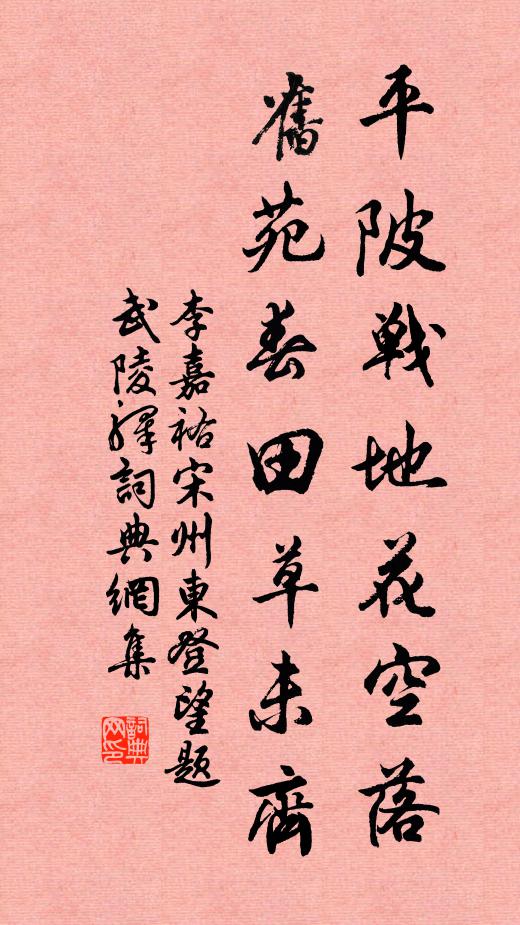 平陂戰地花空落
舊苑春田草未齊
李嘉祐宋州東登望題
武陵驛詞典網集
詞典网印